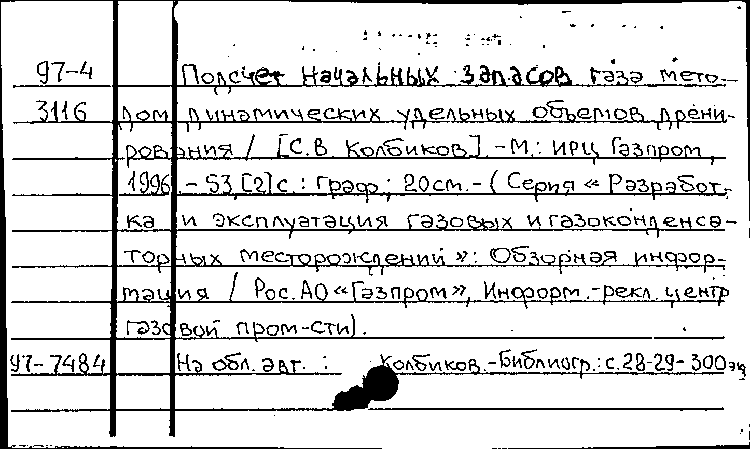 97-4 Подсчет начальных запасов газа мето-
3116 дом динамических удельных объемов дрени-
рования / [С.В. Колбиков]. - М.: ИРЦ Газпром,
1996. - 53,[2]с.: граф.; 20см. - (Серия « Разработ-
ка и эксплуатация газовых и газоконденса-
торных месторождений »: Обзорная инфор-
мация / Рос. АО «Газпром», Информ.-рекл. центр
газовой пром-сти).
97-7484 На обл. авт.: Колбиков. - Библиогр.: с.28-29 - 300 экз